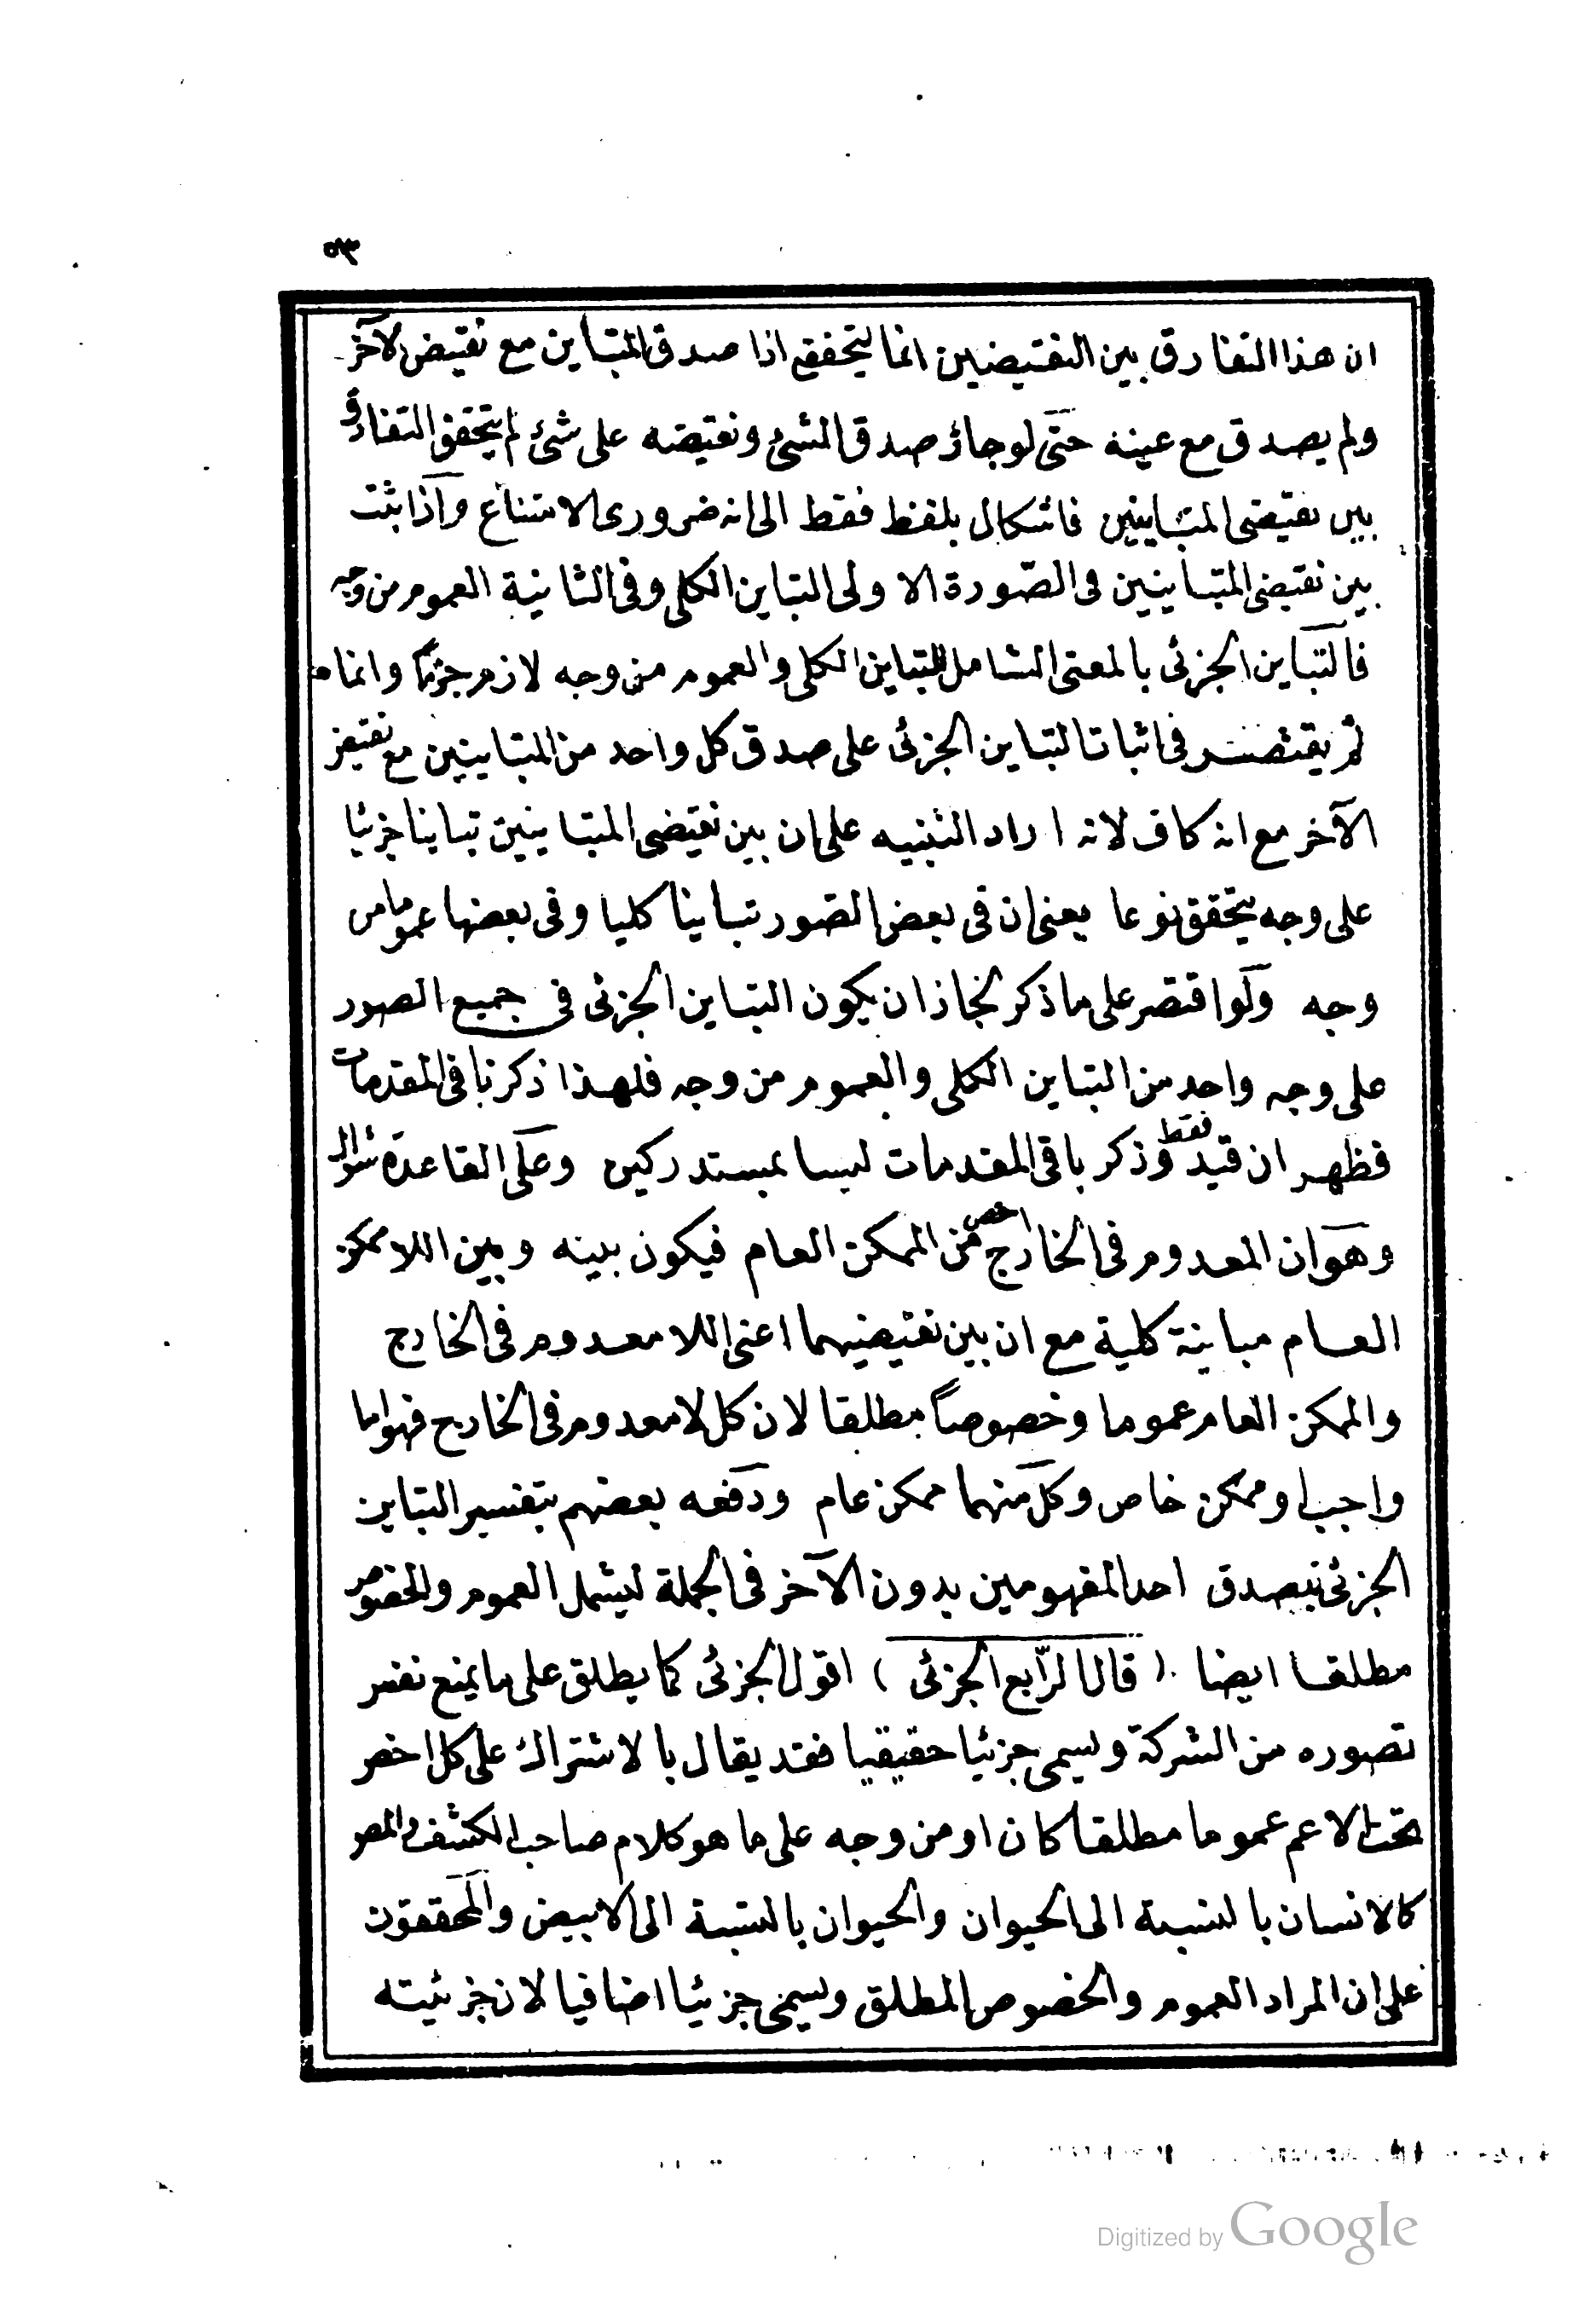 ٥٣
ان هذا التفارق بين النقيضين انما يتحقق اذا صدق المتباين مع نقيض الآخر
ولم يصدق مع عينه حتى لو جاز صدق الشئ ونقيضه على شئ لم يتحقق التفارق
بين نقيضى المتباينين فاشكال بلفظ فقط الى انه ضرورى الامتناع واذا ثبت
بين نقيضى المتباينين فى الصورة الاولى التباين الكلى وفى الثانية العموم من وجه
فالتباين الجزئى بالمعنى الشامل للتباين الكلى والعموم من وجه لازم جزما وانما
لم يقتصر فى اثبات التباين الجزئى على صدق كل واحد من المتباينين مع نقيض
الآخر مع انه كاف لانه اراد التنبيه على ان بين نقيضى المتباينين تباينا جزئيا
على وجه يتحقق نوعا يعنى ان فى بعض الصور تباينا كليا وفى بعضها عموما من
وجه ولو اقتصر على ما ذكر لجاز ان يكون التباين الجزئى فى جميع الصور
على وجه واحد من التباين الكلى والعموم من وجه فلهذا ذكر باقى المقدمات
فظهر ان قيد فقط وذكر باقى المقدمات ليسا بمستدركين وعلى القاعدة سؤال
وهو ان المعدوم فى الخارج اخص من الممكن العام فيكون بينه وبين اللا ممكن
العام مباينة كلية مع ان بين نقيضيهما اعنى اللا معدوم فى الخارج
والممكن العام عموما وخصوصاً مطلقا لان كل لا معدوم فى الخارج فهو اما
واجب او ممكن خاص وكل منهما ممكن عام ودفعه بعضهم بتفسير التباين
الجزئى بصدق احد المفهومين بدون الآخر فى الجملة ليشمل العموم والخصوص
مطلقا ايضا (قال الرّابع الجزئى) اقول الجزئى كما يطلق على ما يمنع نفس
تصوره من الشركة ويسمى جزئيا حقيقيا فقد يقال بالاشتراك على كل اخص
تحت الاعم عموما مطلقا كان او من وجه على ما هو كلام صاحب الكشف والمص
كالانسان بالنسبة الى الحيوان والحيوان بالنسبة الى الابيض والمحققون
على ان المراد العموم والخصوص المطلق ويسمى جزئيا اضافيا لان جزئيته
Digitized by Google